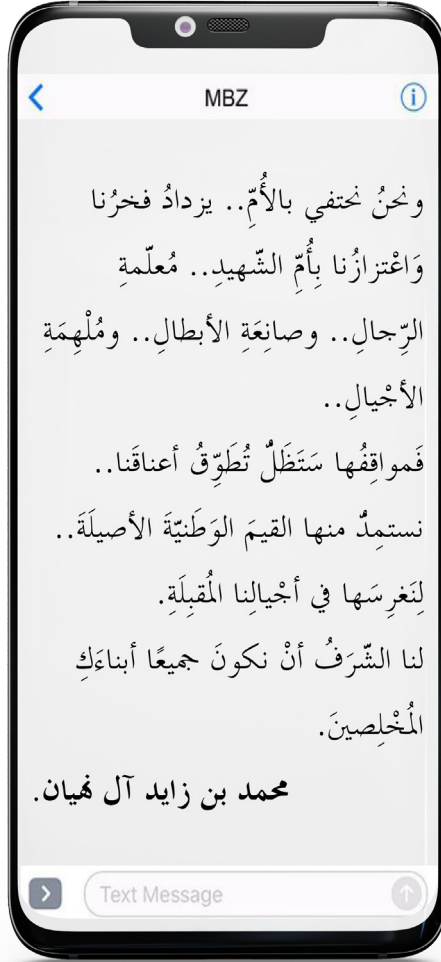 MBZ
ونحنُ نحتفي بالأُمّ.. يزدادُ فخرُنا
وَاعْتزازُنا بِأُمّ الشّهيدِ.. مُعلّمةِ
الرّجالِ.. وصانِعَةِ الأبطالِ.. ومُلْهِمَةِ
الأجْيالِ..
فَمواقِفُها سَتَظَلُّ تُطَوّقُ أعناقَنا..
نستمِدُّ منها القيمَ الوَطَنيّةَ الأصيلَةَ..
لِنَغرِسَها في أجْيالِنا المُقبِلَةِ.
لنا الشّرَفُ أنْ نكونَ جميعًا أبناءَكِ
المُخْلِصينَ.
محمد بن زايد آل نهيان.
Text Message